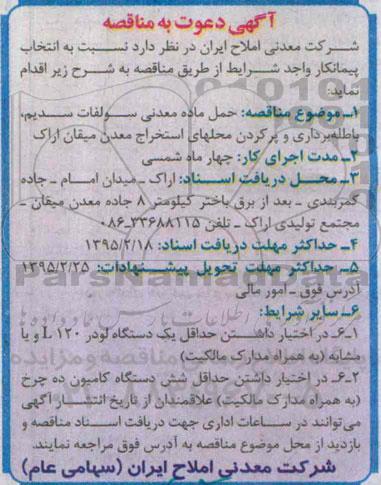 آگهی دعوت به مناقصه
شرکت معدنی املاح ایران در نظر دارد نسبت به انتخاب
پیمانکار واجد شرایط از طریق مناقصه به شرح زیر اقدام
نماید:
۱ـ موضوع مناقصه: حمل ماده معدنی سولفات سدیم،
باطله‌برداری و پرکردن محلهای استخراج معدن میقان اراک
۲ـ مدت اجرای کار: چهار ماه شمسی
۳ـ محل دریافت اسناد: اراک ـ میدان امام ـ جاده
کمربندی ـ بعد از برق باختر کیلومتر ۸ جاده معدن میقان ـ
مجتمع تولیدی اراک ـ تلفن ۳۳۶۸۸۱۱۵-۰۸۶
۴ـ حداکثر مهلت دریافت اسناد: ۱۳۹۵/۲/۱۸
۵ـ حداکثر مهلت تحویل پیشنهادات: ۱۳۹۵/۲/۲۵
آدرس فوق ـ امور مالی
۶ـ سایر شرایط:
۶ـ۱ـ در اختیار داشتن حداقل یک دستگاه لودر L ۱۲۰ و یا
مشابه (به همراه مدارک مالکیت)
۶ـ۲ـ در اختیار داشتن حداقل شش دستگاه کامیون ده چرخ
(به همراه مدارک مالکیت) علاقمندان از تاریخ انتشار آگهی
می‌توانند در ساعات اداری جهت دریافت اسناد مناقصه و
بازدید از محل موضوع مناقصه به آدرس فوق مراجعه نمایند.
شرکت معدنی املاح ایران (سهامی عام)
ParsNamadData